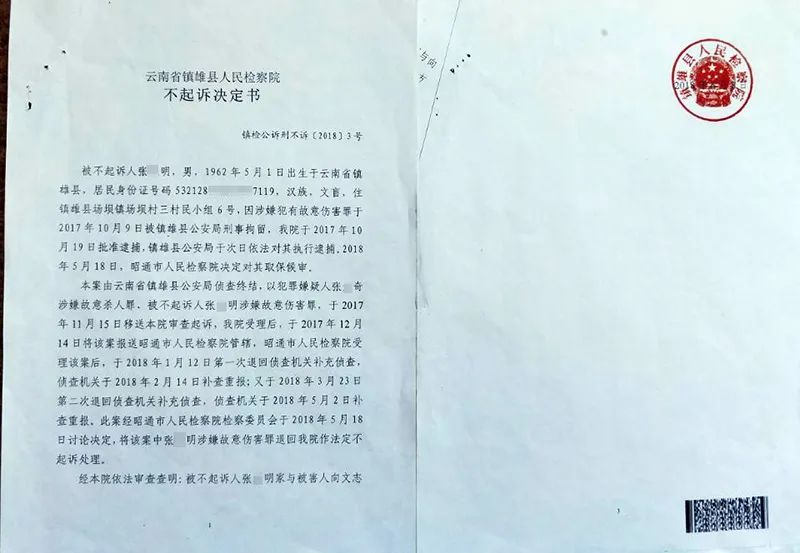 云南省镇雄县人民检察院
不起诉决定书
镇检公诉刑不诉〔2018〕3号
被不起诉人张 明，男，1962年5月1日出生于云南省镇
雄县，居民身份证号码532128 7119，汉族，文盲，住
镇雄县场坝镇场坝村三村民小组6号，因涉嫌犯有故意伤害罪于
2017年10月9日被镇雄县公安局刑事拘留，我院于2017年10
月19日批准逮捕，镇雄县公安局于次日依法对其执行逮捕。2018
年5月18日，昭通市人民检察院决定对其取保候审。
本案由云南省镇雄县公安局侦查终结，以犯罪嫌疑人张 奇
涉嫌故意杀人罪、被不起诉人张 明涉嫌故意伤害罪，于2017
年11月15日移送本院审查起诉，我院受理后，于2017年12月
14日将该案报送昭通市人民检察院管辖，昭通市人民检察院受
理该案后，于2018年1月12日第一次退回侦查机关补充侦查，
侦查机关于2018年2月14日补查重报；又于2018年3月23日
第二次退回侦查机关补充侦查，侦查机关于2018年5月2日补
查重报。此案经昭通市人民检察院检察委员会于2018年5月18
日讨论决定，将该案中张 明涉嫌故意伤害罪退回我院作法定不
起诉处理。
经本院依法审查查明：被不起诉人张 明家与被害人向文志
1
与向
书
镇雄县人民检察院
3